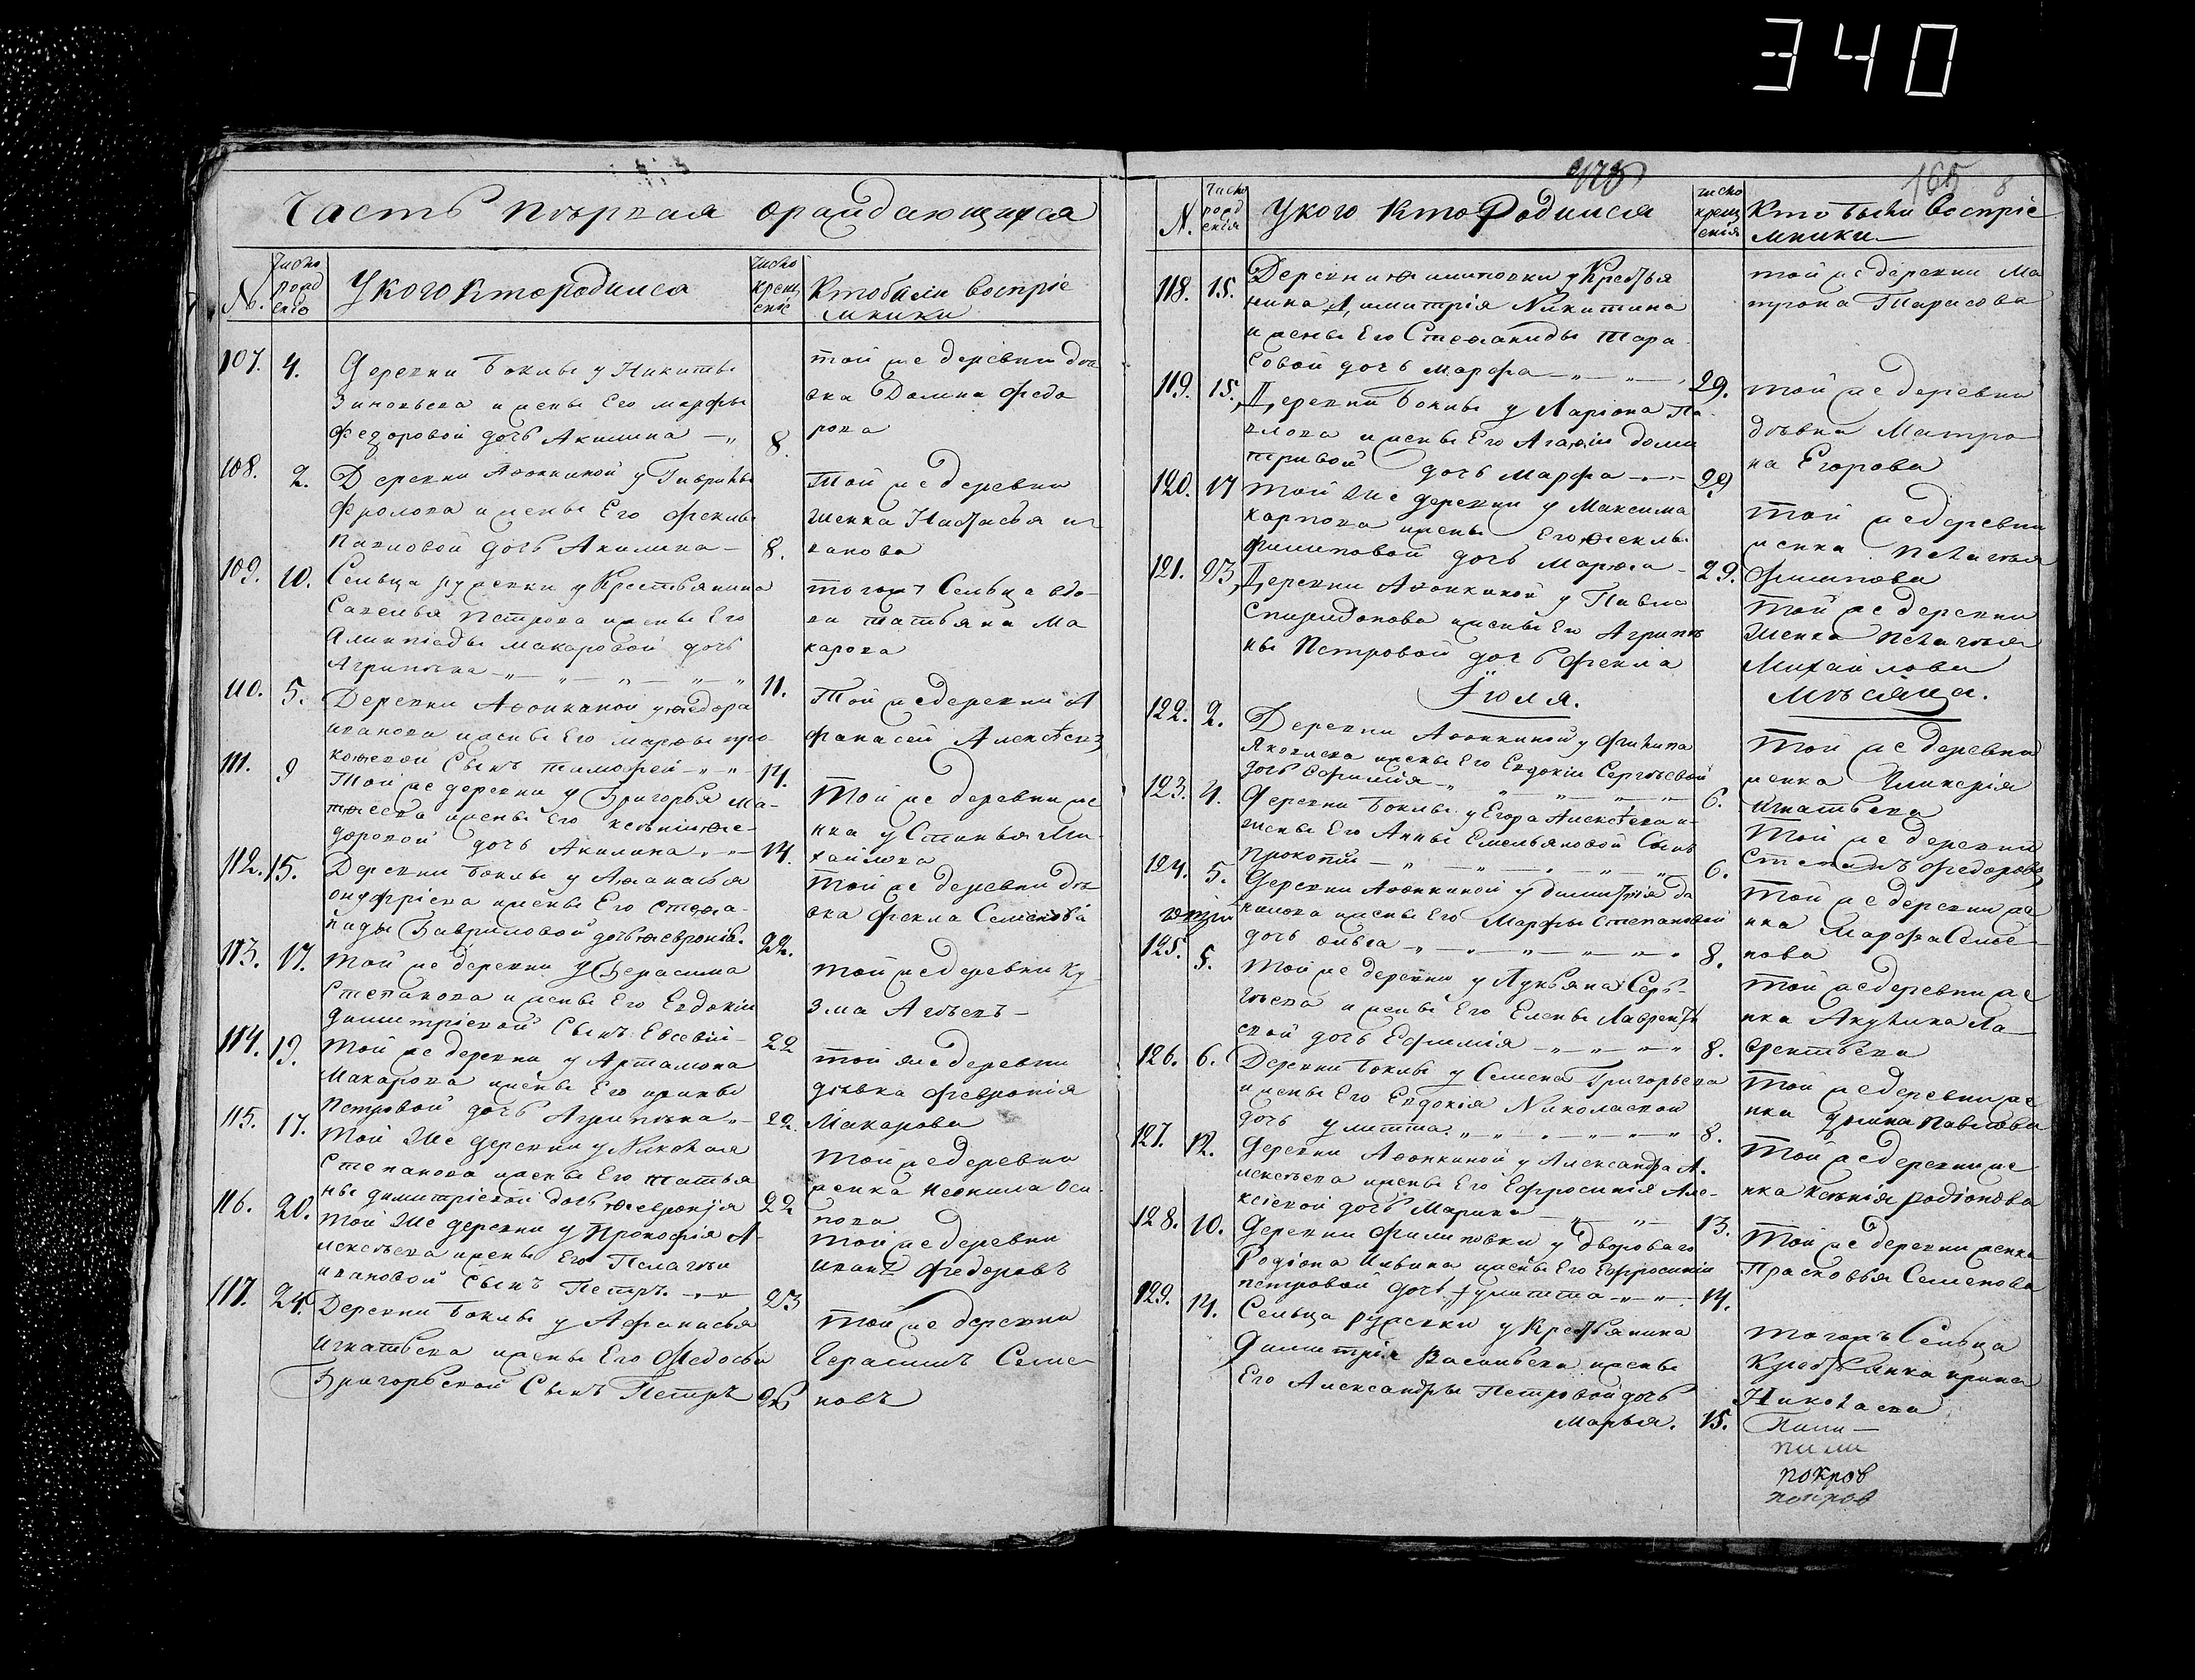 340
Часть пѣрвая ораждающихся
№.
Число рожденiя
У кого кто родился
Число крещенiя
Кто были воспрiе
мники
107. 4.
Деревни Боклы у Никиты
Зиновьева и жены Его марфы
Федоровой дочь Акилина
8.
той же деревни дѣв
ка Домна Федо
рова
108. 2.
Деревни Аѳонкиной у Гаврилы
Фролова и жены Его Феклы
Павловой дочь Акилина
8.
Той же деревни
женка Настасья и
ванова
109. 10.
Сельца рузаевки у Крестьянина
Савелья петрова и жены Его
Алимпiады макаровой дочь
Агрипѣна
11.
тогожъ Сельца вдо
ва татьяна Ма
карова
110. 5.
Деревни Аѳонкиной у ѳедора
иванова и жены Его марѳы про
коѳевой Сынъ тимофей
14.
Той же деревни А
фанасей Алексѣевъ
111. 9
Той же деревни у Григорья Ма-
тѳеева и жены Его ксѣнiи ѳе-
доровой дочь Акилина
14.
Той же деревни же
нка Устинья Ми
хайлова
112. 15.
Деревни Боклы у Аѳанасья
онуфрiева и жены Его стеѳа-
ниды Гавриловой дочь ѳеврония.
22.
Той же деревни дѣв
ка Фекла Семенова
113. 17.
Той же деревни у Герасима
Степанова и жены Его Евдокiи
димитрiевой Сынъ Евсевiй
22
той же деревни Ку
зма Агѣевъ
114. 19.
Той же деревни у Артамона
Макарова и жены Его ирины
Петровой дочь Агрипѣна
22.
той же деревни
дѣвка Февронiя
Макарова
115. 17.
Той же деревни у Николая
Степанова и жены Его татья
ны димитрiевой дочь ѳевронiя
22
той же деревни
женка Неонила Оси
пова
116. 20.
Той же деревни у Прокофiя А-
лексѣева и жены Его Пелагѣи
ивановой Сынъ Петръ.
23
той же деревни
иванъ Федоровъ
117. 24.
Деревни Боклы у Афанасья
Игнатьева и жены Его Федосьи
Григорьевой Сынъ Петръ
26
той же деревни
Герасимъ Семе
новъ
165
№.
Число рожденiя
У кого кто Родился
число крещенiя
Кто были воспрiе
мники
118. 15.
Деревни ѳилиповки у Крестья
нина Димитрiя Никитина
и жены Его Стеѳаниды тара
совой дочь марфа
29.
той же деревни Ма
трона Тарасова
119. 15.
Деревни Боклы у Ларiона Па-
влова и жены Его Агаѳiи дими
трiвой дочь Марфа
29
той же деревни
дѣвка Матро
на Егорова
120. 17
той же деревни у Максима
карпова и жены Его ѳеклы
филиповой дочь марѳа
29.
той же деревни
женка пелагѣя
Филипова
121. 23
Деревни Аѳонкиной у Павла
Спиридонова и жены Его Агрипѣ
ны Петровой дочь Фекла
той же деревни
Женка пелагѣя
Михайлова
Iюля. Мѣсяца.
122. 2.
Деревни Аѳонкиной у Филипа
Яковлева и жены Его Евдокiи Сергѣевой
дочь Ефимiя
6.
той же деревни
женка Гликерiя
игнатьева
123. 4.
Деревни Боклы у Егора Алексѣева и
жены Его Анны Емельяновой Сынъ
прокопiй
6.
той же деревни
Степанъ Федоровъ
124. 5.
Деревни Аѳонкиной у димитрiя да
нилова и жены Его Марфы Степановой
дочь ольга
8.
той же деревни же
нка Марфа Семе
нова
125. 5.
той же деревни у Лукьяна Сер-
гѣева и жены Его Елены Лаврентье
вой дочь Ефимiя
8.
той же деревни же
нка Акулина Ла-
врентьева
126. 6.
Деревни Боклы у Семена Григорьева
и жены Его Евдокiя Николаевой
дочь улитта.
8.
той же деревни же
нка ирина павлова
127. 12.
Деревни Аѳонкиной у Александра А-
лексѣева и жены Его Ефросинiя Але-
ксiевой дочь Марина
13.
той же деревни же
нка ксѣнiя родiонова
128. 10.
Деревни Филиповки у дворового
Родiона Ильина и жены Его Ефросинiи
петровой дочь улитта
14.
той же деревни женка
Прасковья Семенова
129. 14.
Сельца рузаевки у Крестьянина
Димитрiя Васильева и жены
Его Александры Петровой дочь
Марья.
15.
тогожъ Сельца
Крестьянка ирина
Николаева
пили
покров
покров